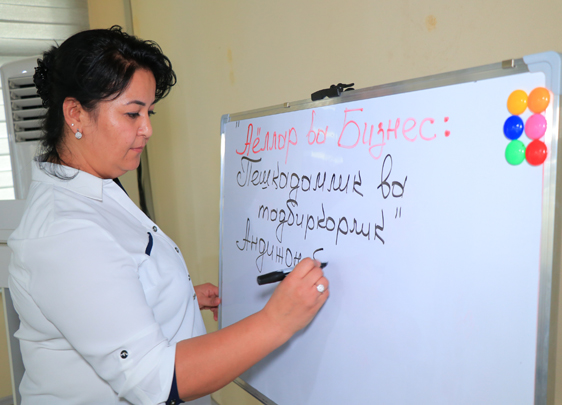 "Аёллар ва Бизнес:
Пешқадамлик ва
тадбиркорлик"
Андижон